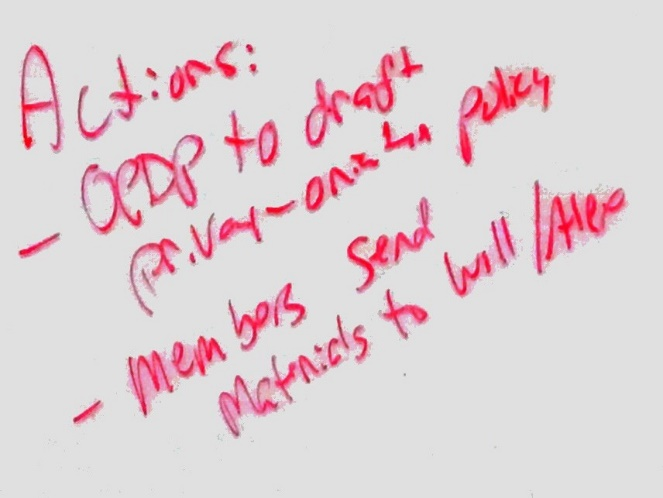 Actions:
- OPDP to draft
policy
- Members send
Materials to Will/Alex